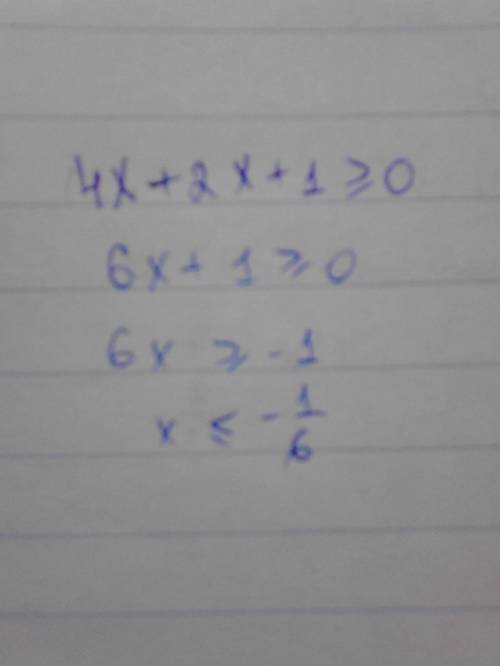 4x + 2x + 1 ⩾ 0
6x + 1 ⩾ 0
6x ⩾ -1
x ≤ -1/6